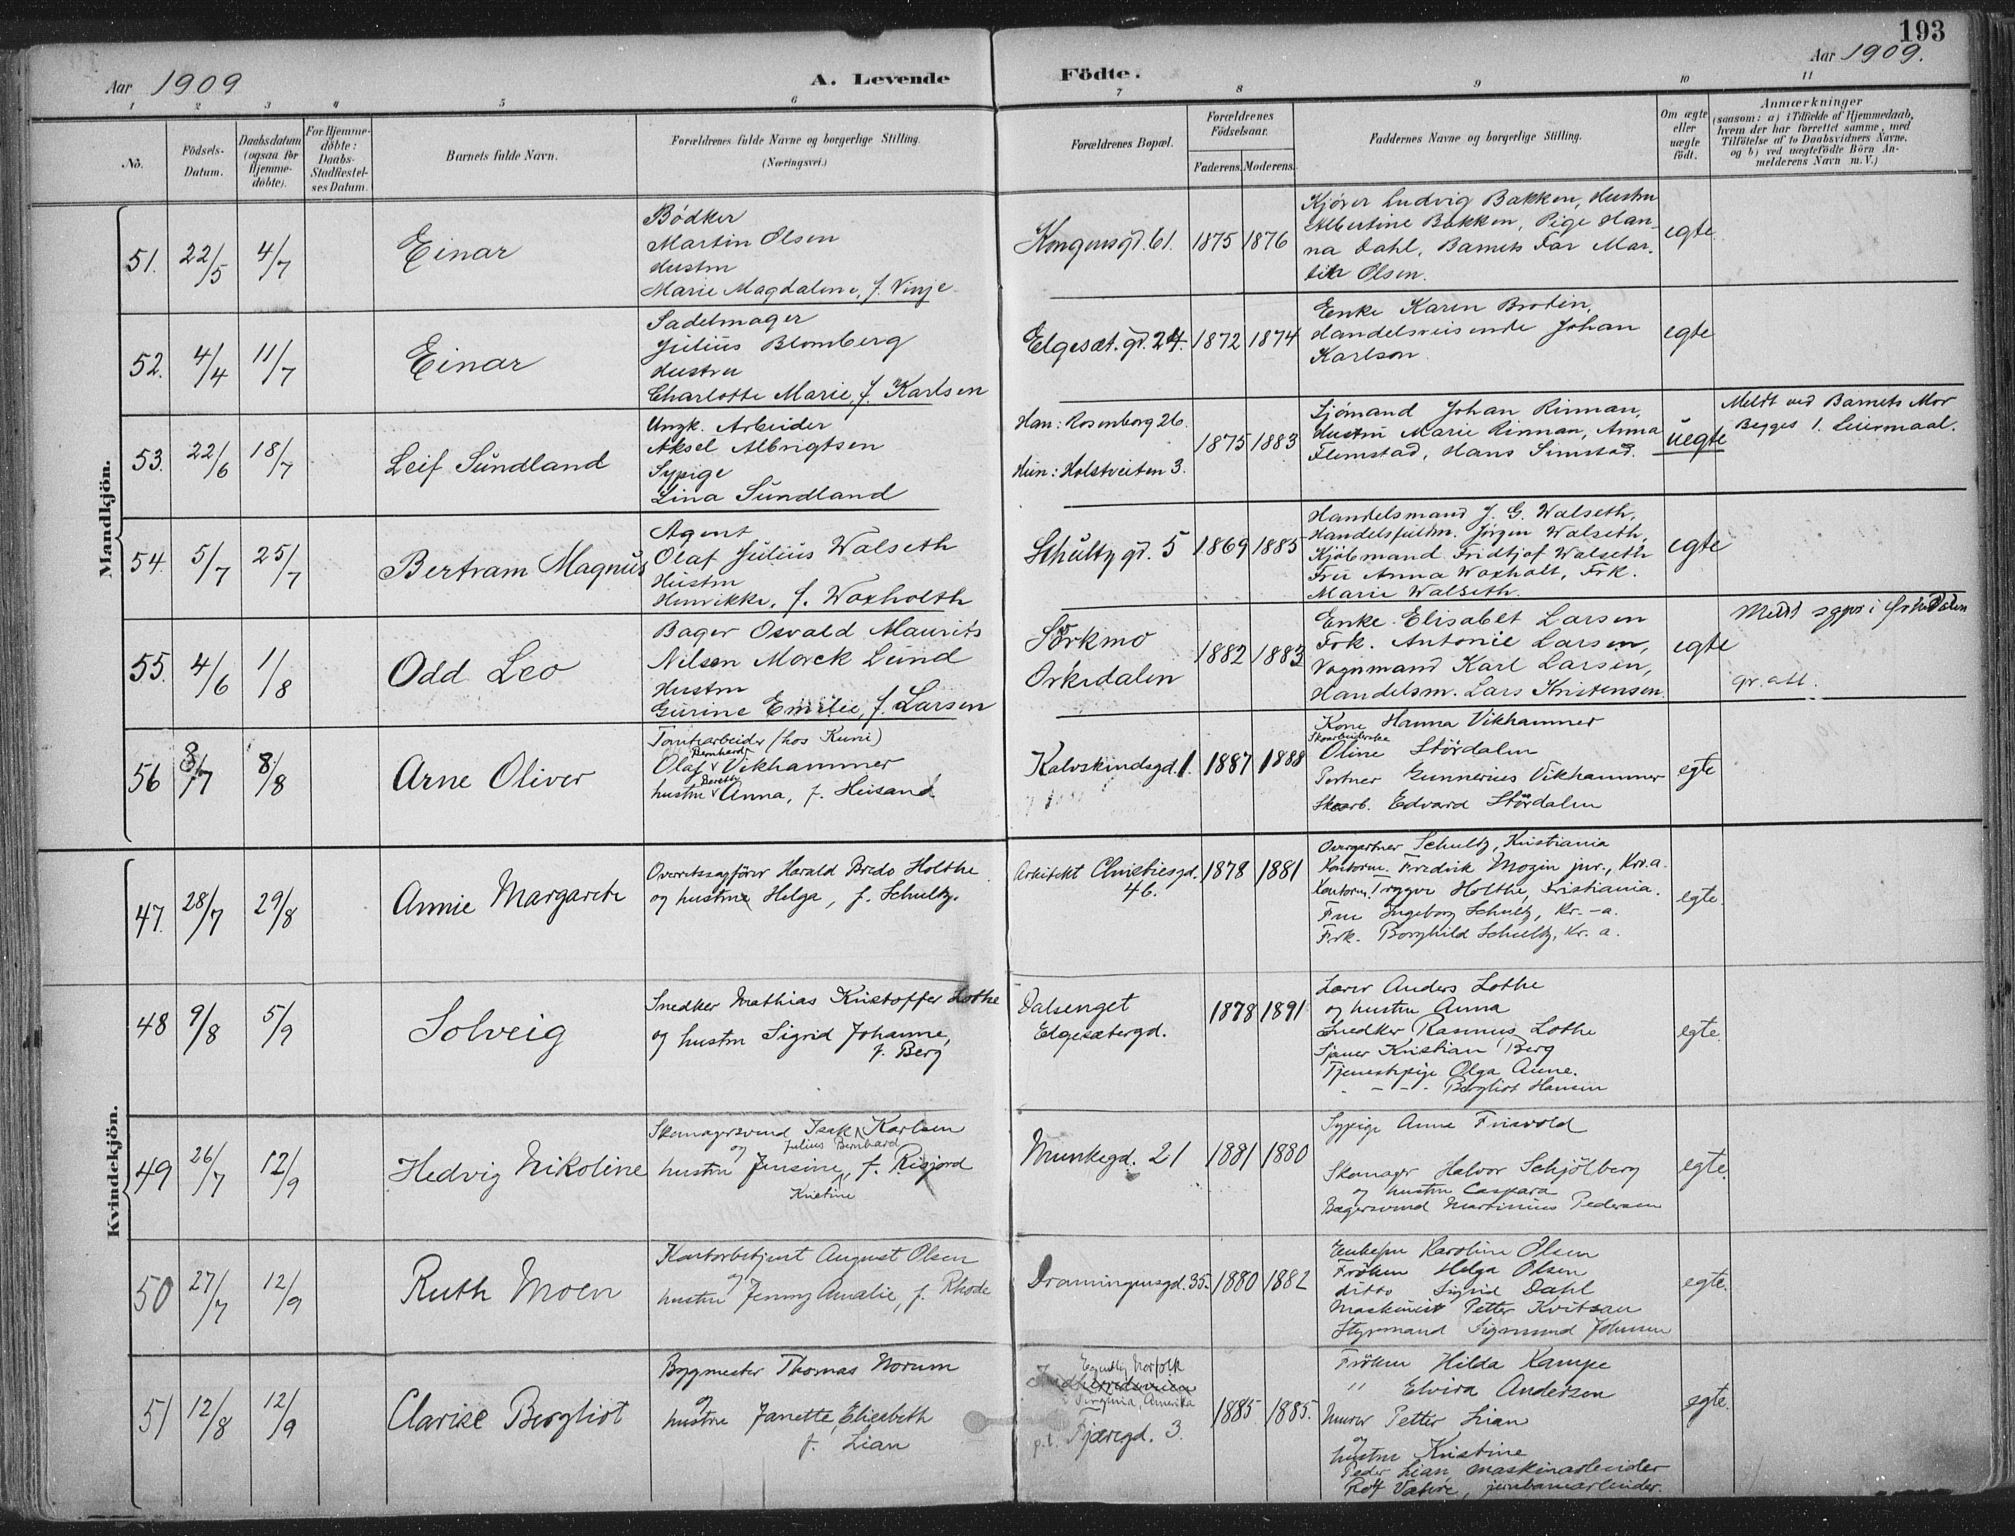 193
Aar 1909
A. Levende Födte.
Aar 1909.
1 2 3 4 5 6 7 8 9 10 11
No.
Födsels-Datum.
Daabsdatum (ogsaa for Hjemme-döbte).
For Hjemme-döbte: Daabs-Stadfestel-ses Datum.
Barnets fulde Navn.
Forældrenes fulde Navne og borgerlige Stilling.
(Næringsvei.)
Forældrenes Bopæl.
Forældrenes Födselsaar.
Faderens. Moderens.
Faddernes Navne og borgerlige Stilling.
Om ægte eller uægte födt.
Anmærkninger
(saasom: a) i Tilfælde af Hjemmedaab, hvem der har forrettet samme, med Tilföielse af to Daabsvidners Navne, og b) ved uægtefödte Börn An-melderens Navn m. V.)
Mandkjön.
51. 22/5 4/7 Einar
Bödker
Martin Olsen
Hustru
Marie Magdalene, f. Vinje
Kongensgd. 61. 1875 1876
Kjörer Ludvig Bakken, Hustru
Albertine Bakken, Pige Han-
na Dahl, Barnets Far Mar-
tin Olsen.
egte
52. 4/4 11/7 Einar
Sadelmager
Julius Blomberg
Hustru
Charlotte Marie, f. Karlsen
Elgesæt. gd. 24. 1872 1874
Enke Karen Brodin,
Handelsreisende Johan
Karlson
egte
53. 22/6 18/7 Leif Sundland
Ungk. Arbeider
Aksel Albrigtsen
Sypige
Lina Sundland
Han: Rosenborg 26
Hun: Holstveiten 3.
1875 1883
Sjömand Johan Rinnan,
Hustru Marie Rinnan, Anna
Flemstad, Hans Simstad.
uegte
Meldt ved Barnets Mor
Begges 1. Leiermaal.
54. 5/7 25/7 Bertram Magnus
Agent
Olaf Julius Walseth
Hustru
Henrikke, f. Woxholth
Schultzgd. 5 1869 1885
Handelsmand J. G. Walseth,
Handelsfuldm. Jörgen Walseth,
Kjöbmand Fridtjof Walseth
Fru Anna Woxholt, Frk.
Marie Walseth.
egte
55. 4/6 1/8 Odd Leo
Bager Osvald Maurits
Nilsen Morck Lund
Hustru
Gurine Emilie, f. Larsen
Sörkmo
Orkedalen
1882 1883
Enke Elisabet Larsen
Frk. Antonie Larsen,
Vognmand Karl Larsen,
Handelsm. Lars Kristensen
egte
Meldt sgpr i Orkedalen
gr. att.
56 8/7 8/8 Arne Oliver
Tomtearbeider (hos Kuni)
Bernhard
Olaf Vikhammer
hustru Anna, f. Heisand
Kalvskindsgd. 1. 1887 1888
Kone Hanna Vikhammer
Skoarbeiderske
Oline Stördalen
Portner Gunnerius Vikhammer
Skoarb. Edvard Stördalen
egte
Kvindekjön.
47. 28/7 29/8 Annie Margarete
Overretssagförer Harald Bredo Holthe
og hustru Helga, f. Schultz.
Arkitekt Christiesgd.
46.
1878 1881
Overgartner Schultz, Kristiania
Kontorm. Fredrik Mozin jnr., Kr.a.
Kontorm. Trygve Holthe, Kristiania.
Fru Ingeborg Schultz, Kr.-a.
Frk. Borghild Schultz, Kr. a.
egte.
48 9/8 5/9 Solveig
Snedker Mathias Kristoffer Lothe
og hustru Sigrid Johanne,
f. Berg
Dalsenget
Elgesætergd.
1878 1891
Lærer Anders Lothe
og hustru Anna
Snedker Rasmus Lothe
Sjauer Kristian Berg
Tjenestepige Olga Aune.
- - - - Bergliot Hansen
egte.
49 26/7 12/9 Hedvig Nikoline
Skomagersvend Isak Karlsen
og Julius Bernhard
hustru Jensine, f. Risjord
Kristine
Munkegd. 21 1881 1880
Sypige Anne Frisvold
Skomager Halvor Schjölberg
og hustru Caspara
Bagersvend Martinius Pedersen
egte.
50 27/7 12/9 Ruth Moen
Kontorbetjent August Olsen
og
hustru Jenny Amalie, f. Rhode
Dronningensgd. 35. 1880 1882
Enkefru Karoline Olsen
Fröken Helga Olsen
ditto Sigrid Dahl
Maskinist Petter Kvitsan
Styrmand Sigmund Johnsen
egte.
51 12/8 12/9 Clarise Bergliot
Bygmester Thomas Norum
og
hustru Janette Elisabeth
f. Lian
Egentlig Norfolk
i Virginia, Amerika
p.t. Fjæregd. 3.
1885 1885.
Fröken Hilda Kampe
" Elvira Anderson
Murer Petter Lian
og
hustru Kristine
Peder Lian, maskinarbeider
Rolf , jernbanearbeider.
egte.